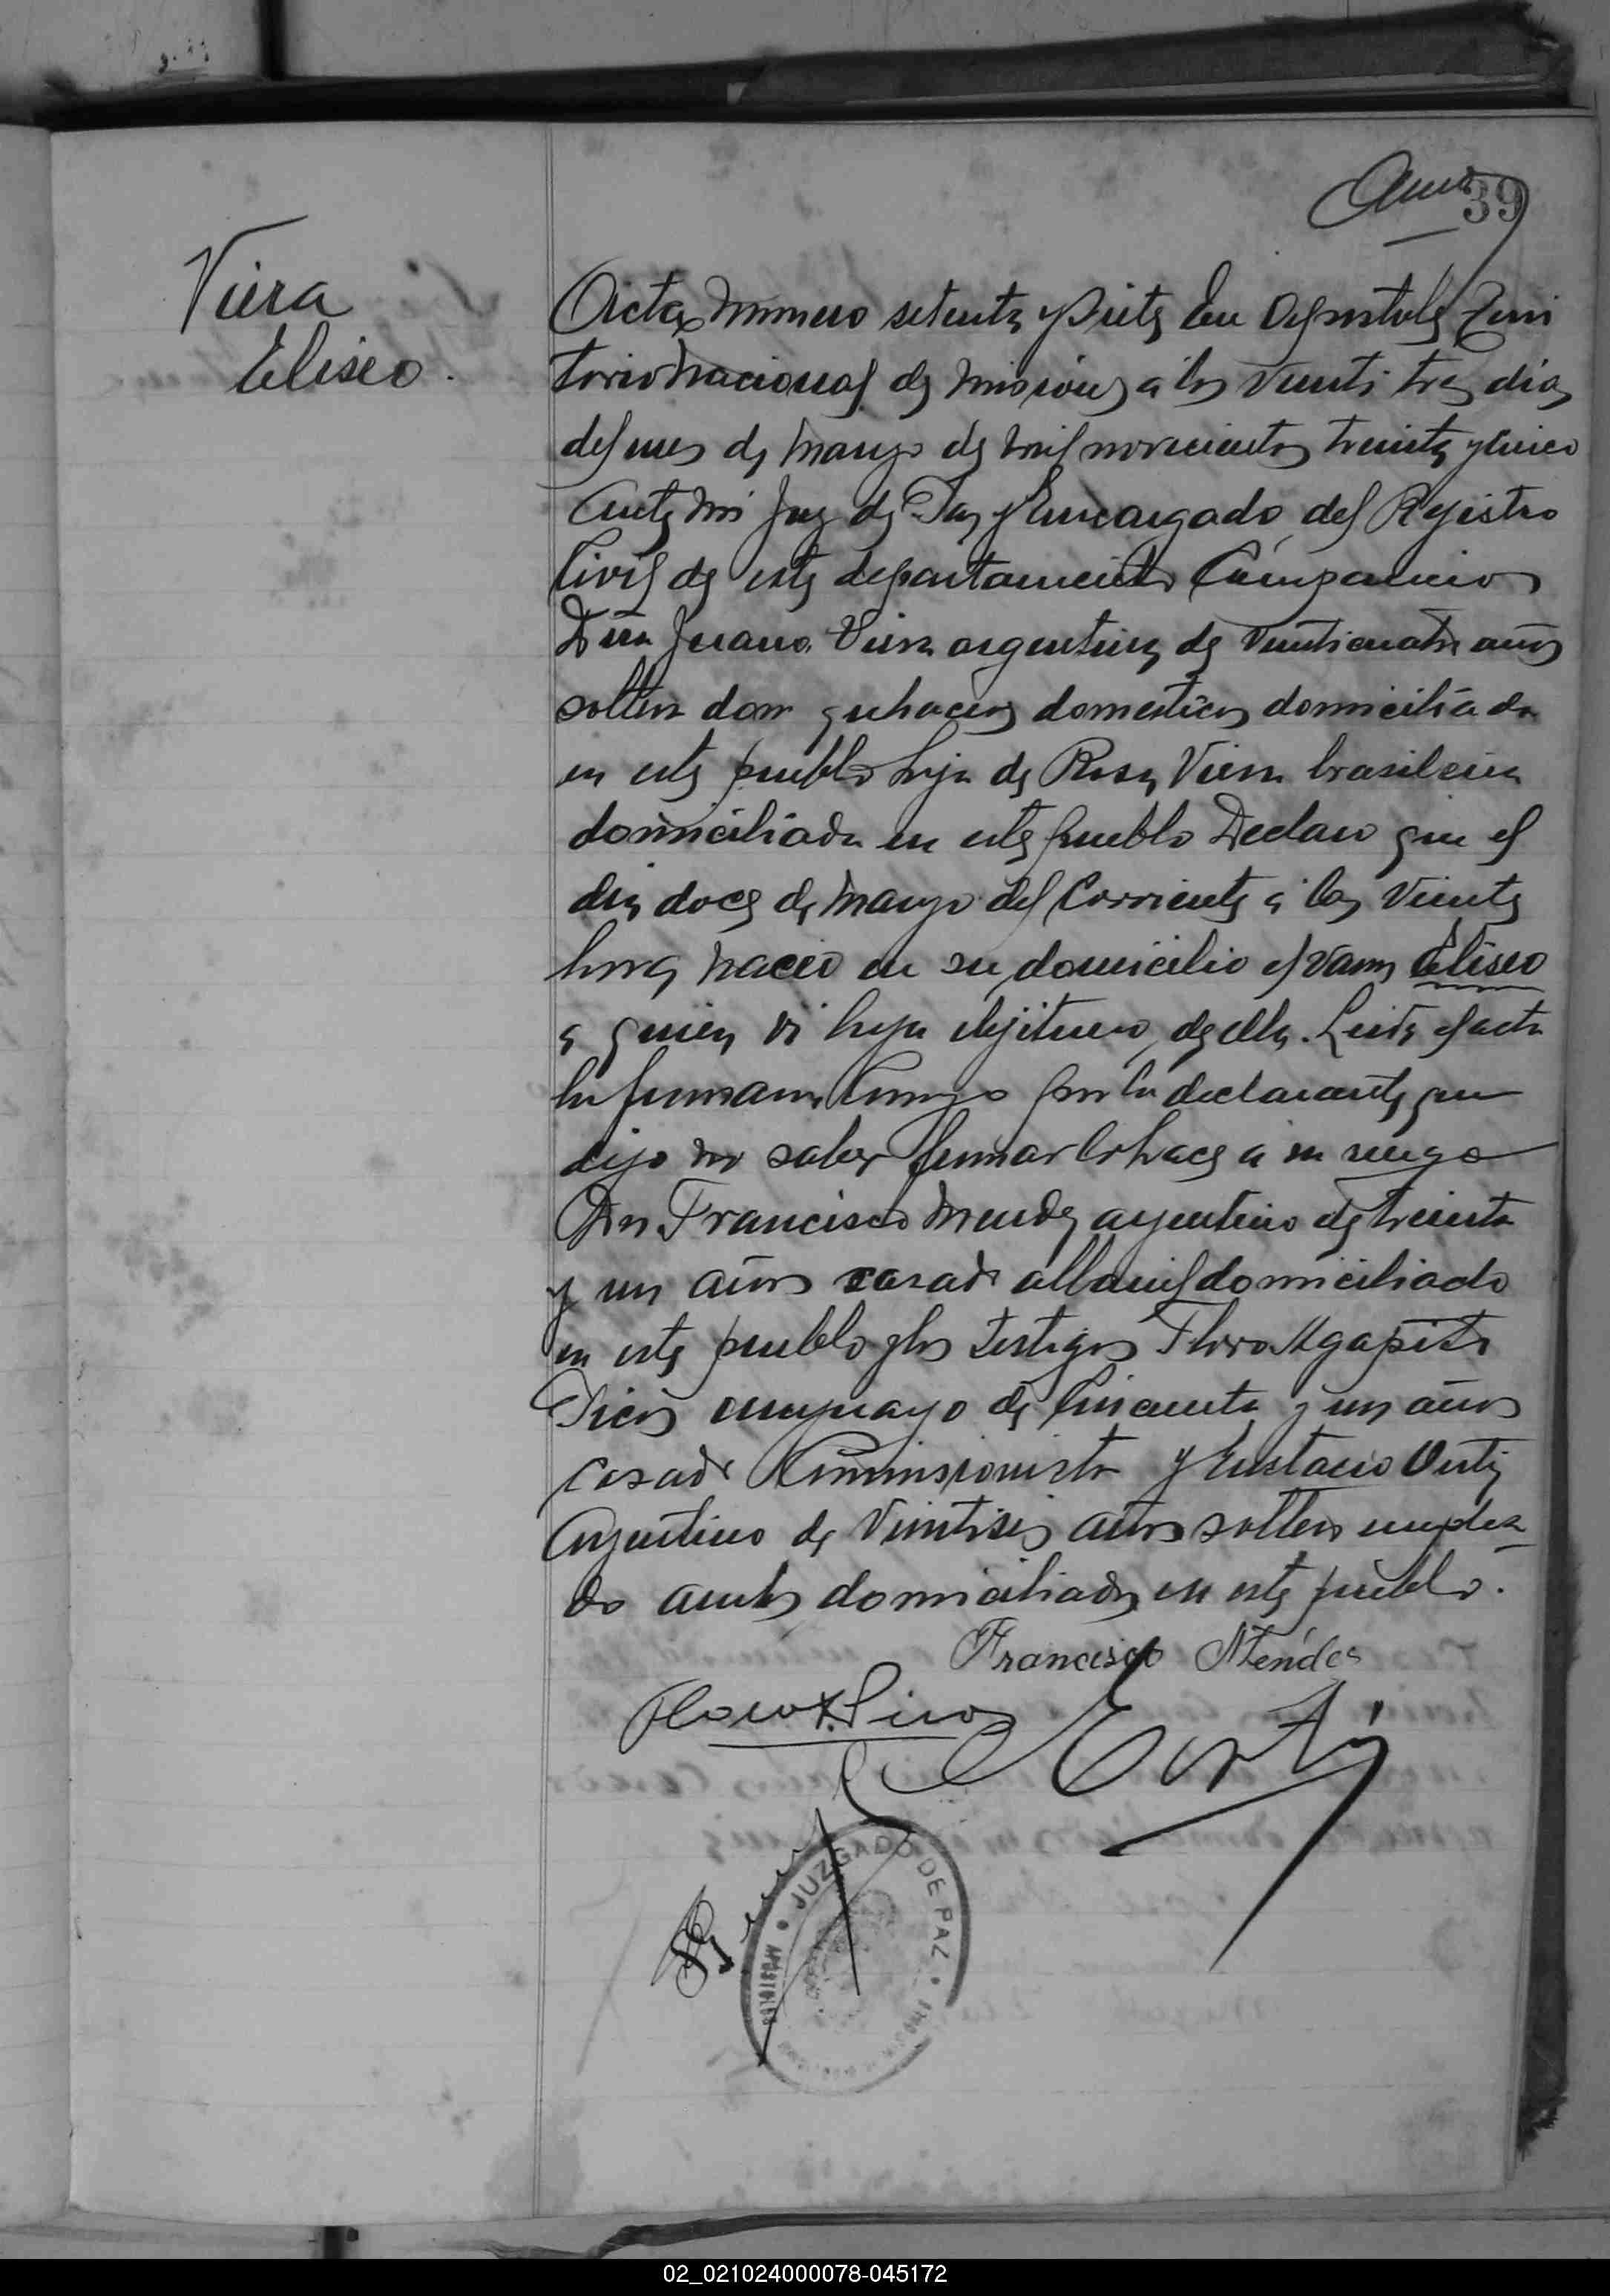 39
Viera
Eliseo.
Acta numero setenta y siete En Apostoles Terri
torio Nacional de Misiones a los veinti tres dias
del mes de Marzo de mil novecientos treinta y cinco
Ante mi Juez de Paz y Encargado del Registro
Civil de este departamento Comparecio
Doña Juana Viera argentina de veinticuatro años
soltera quehaceres domesticos domiciliada
en este pueblo hija de Rosa Viera brasilera
domiciliada en este pueblo Declaro que el
dia doce de Marzo del corriente a las veinte
horas nacio en su domicilio el varon Eliseo
a quien hijo ilejitimo de ella. Leida el acta
la firmaron conmigo por la declarante que
dijo no saber firmar lo hace a su ruego
Don Francisco Mendez argentino de treinta
y un años casado albañil domiciliado
en este pueblo y los testigos Floro Agapito
uruguayo de cincuenta y un años
casado Comisionista y Eustacio Ortiz
Argentino de veintiseis años soltero emplea
do ambos domiciliados en este pueblo.
Francisco Méndez
E Ortiz
JUZGADO DE PAZ